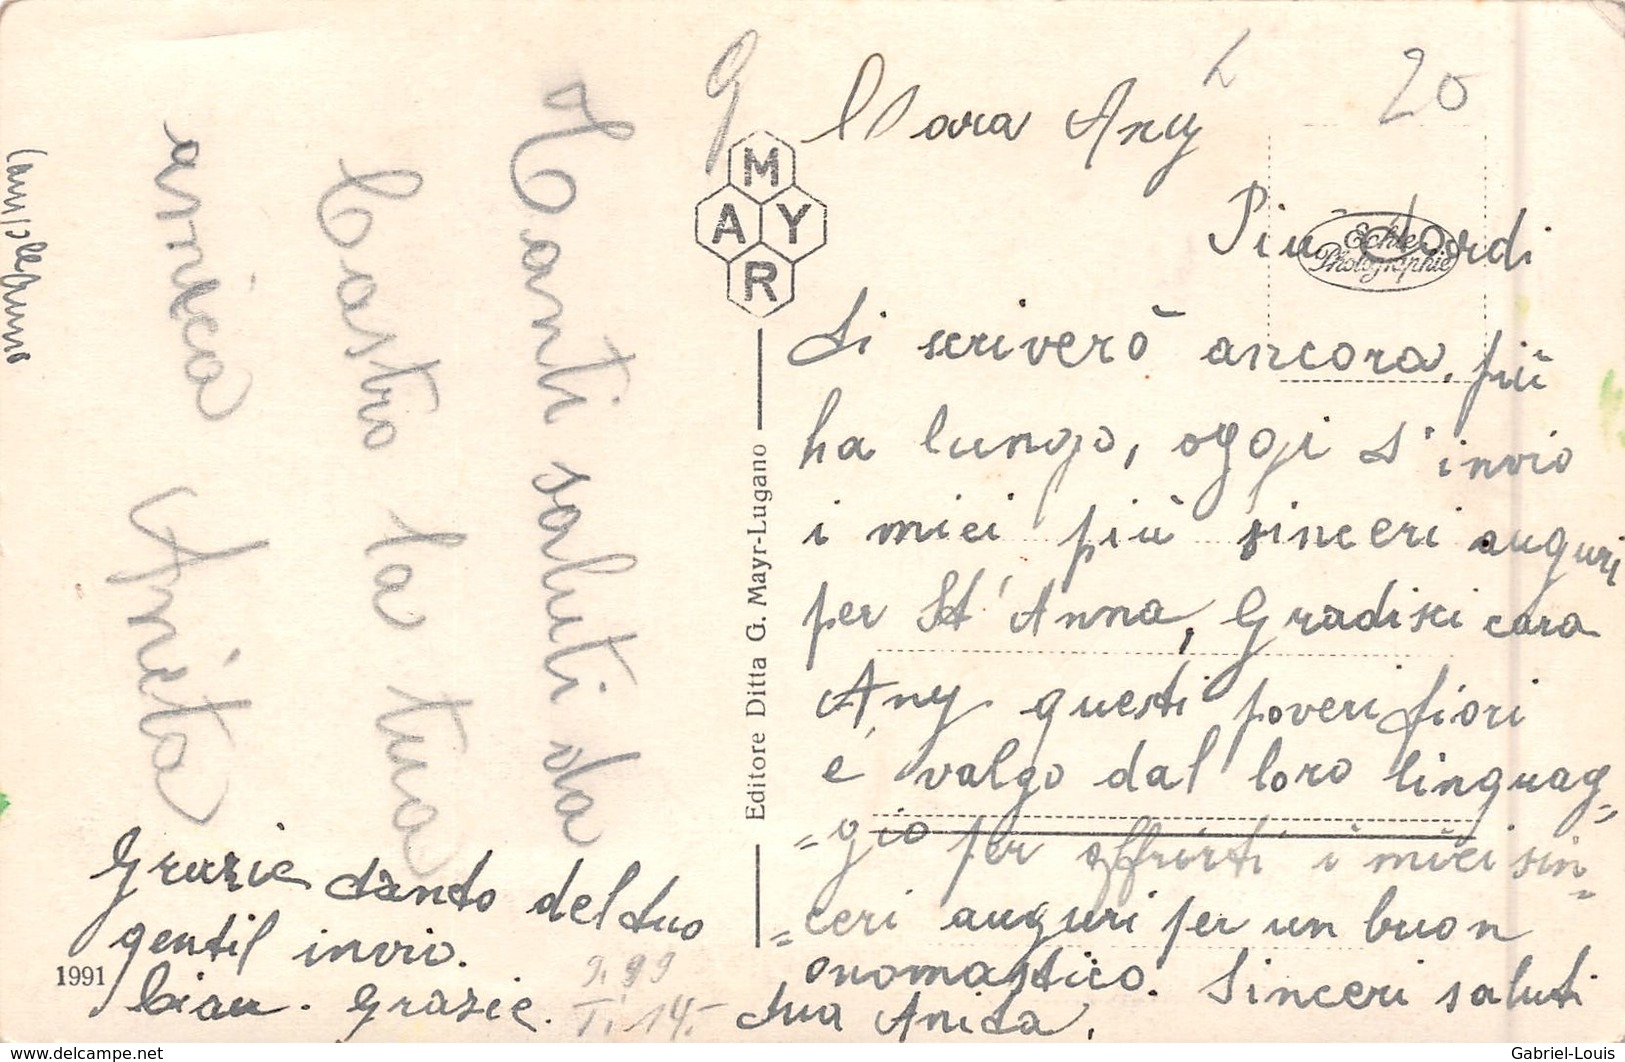 20
9
Cara Any
Più tardi
ti scriverò ancora, più
ha lungo, oggi t'invio
i miei più sinceri auguri
per St'Anna, Gradisci cara
Any questi poveri fiori
e valgo dal loro linguag=
=gio per offrirti i miei sin=
=ceri auguri per un buon
onomastico. Sinceri saluti
tua Anita.
MAYR
Echte
Photographie
Editore Ditta G. Mayr-Lugano
Tanti saluti da
la tua
amica
Grazie tanto del tuo
gentil invio.
Ciau. Grazie.
1991
9.99
T. 14.-
www.delcampe.net
Gabriel-Louis